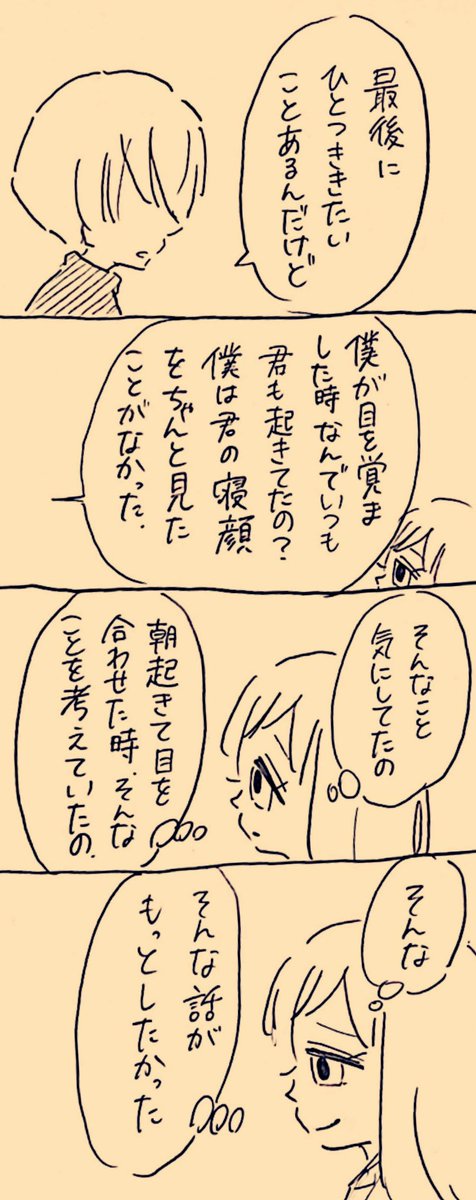 最後に
ひとつききたい
ことあるんだけど
僕が目を覚ま
した時なんでいつも
君も起きてたの？
僕は君の寝顔
をちゃんと見た
ことがなかった．
そんなこと
気にしてたの
朝起きて目を
合わせた時、そんな
ことを考えていたの．
そんな
そんな話が
もっとしたかった